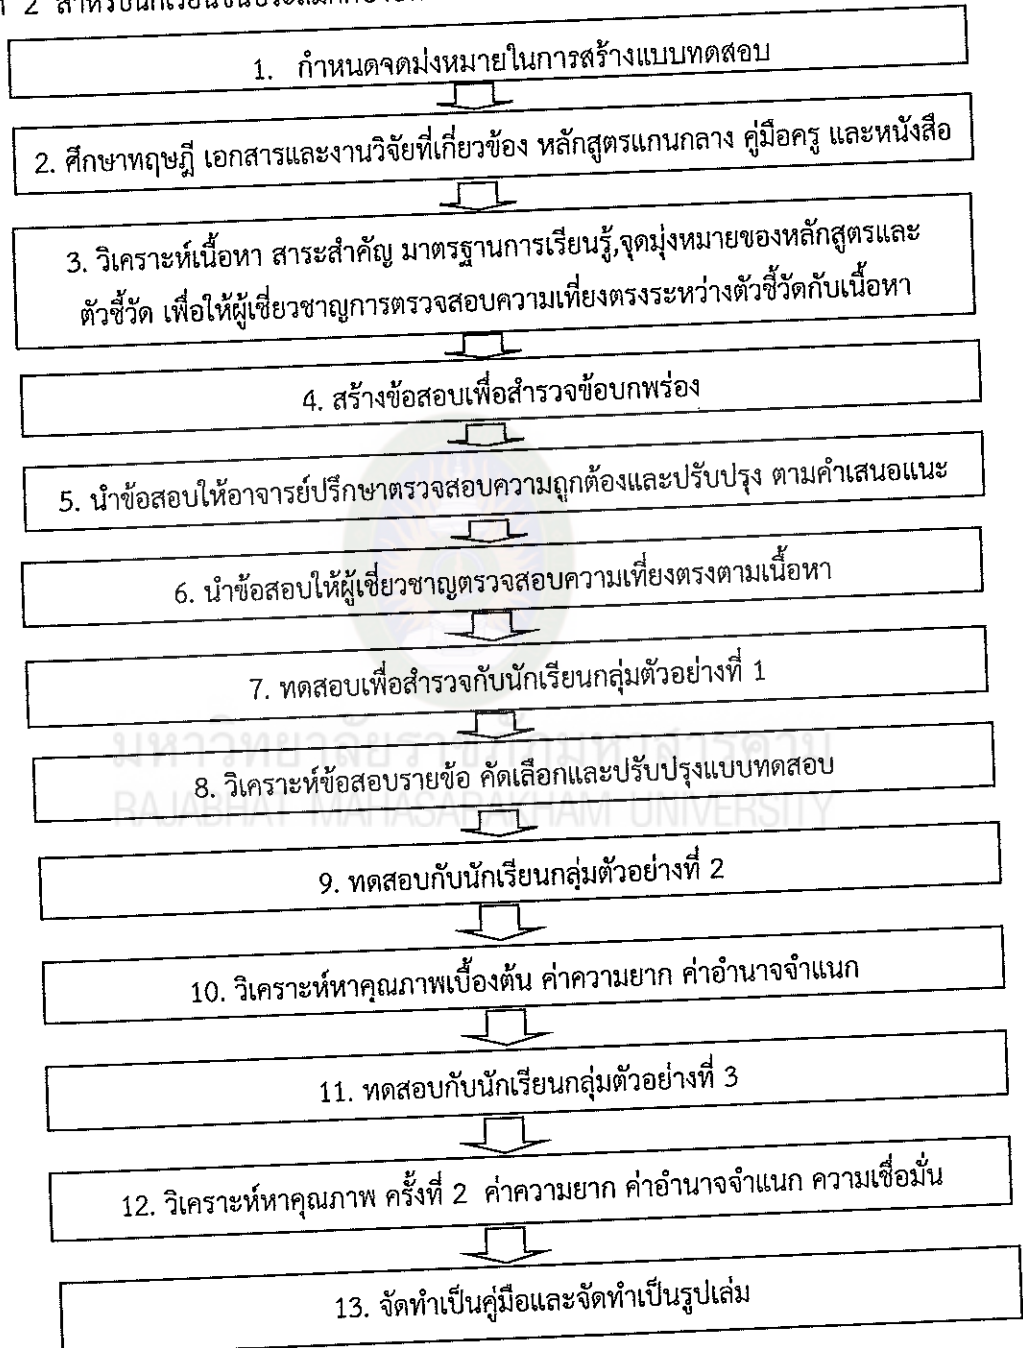 2 สำหรับนักเรียนชั้นประถมศึกษา
1. กำหนดจดม่งหมายในการสร้างแบบทดสอบ
2. ศึกษาทฤษฎี เอกสารและงานวิจัยที่เกี่ยวข้อง หลักสูตรแกนกลาง คู่มือครู และหนังสือ
3. วิเคราะห์เนื้อหา สาระสำคัญ มาตรฐานการเรียนรู้,จุดมุ่งหมายของหลักสูตรและ
ตัวชี้วัด เพื่อให้ผู้เชี่ยวชาญการตรวจสอบความเที่ยงตรงระหว่างตัวชี้วัดกับเนื้อหา
4. สร้างข้อสอบเพื่อสำรวจข้อบกพร่อง
5. นำข้อสอบให้อาจารย์ปรึกษาตรวจสอบความถูกต้องและปรับปรุง ตามคำเสนอแนะ
6. นำข้อสอบให้ผู้เชี่ยวชาญตรวจสอบความเที่ยงตรงตามเนื้อหา
7. ทดสอบเพื่อสำรวจกับนักเรียนกลุ่มตัวอย่างที่ 1
มหาวิทยาลัยราชภัฏมหาสารคาม
8. วิเคราะห์ข้อสอบรายข้อ คัดเลือกและปรับปรุงแบบทดสอบ
RAJABHAT MAHASARAKHAM UNIVERSITY
9. ทดสอบกับนักเรียนกลุ่มตัวอย่างที่ 2
10. วิเคราะห์หาคุณภาพเบื้องต้น ค่าความยาก ค่าอำนาจจำแนก
11. ทดสอบกับนักเรียนกลุ่มตัวอย่างที่ 3
12. วิเคราะห์หาคุณภาพ ครั้งที่ 2 ค่าความยาก ค่าอำนาจจำแนก ความเชื่อมั่น
13. จัดทำเป็นคู่มือและจัดทำเป็นรูปเล่ม